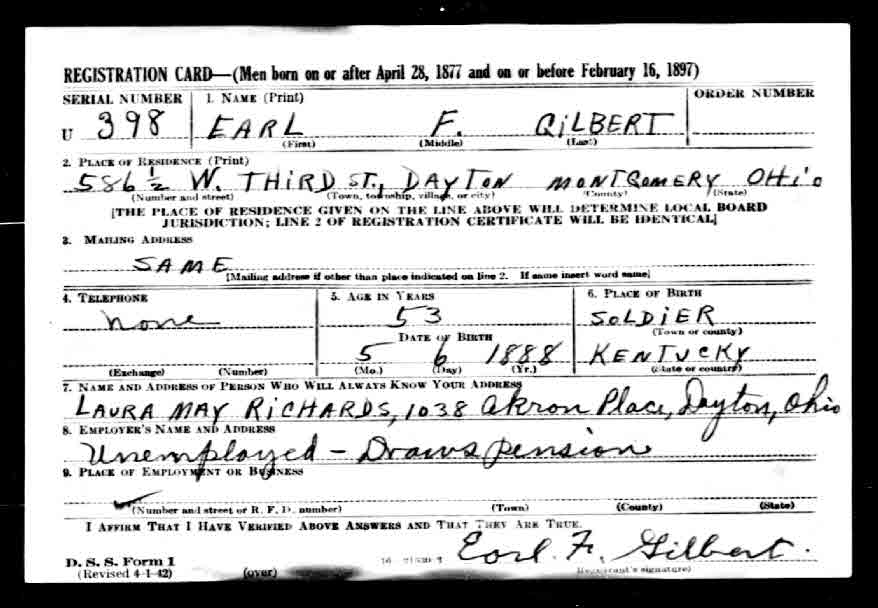 REGISTRATION CARD—(Men born on or after April 28, 1877 and on or before February 16, 1897)
SERIAL NUMBER 1. NAME (Print) ORDER NUMBER
U 398 EARL F. GILBERT
(First) (Middle) (Last)
2. PLACE OF RESIDENCE (Print)
586 ½ W. THIRD ST., DAYTON MONTGOMERY OHIO
(Number and street) (Town, township, village, or city) (County) (State)
[THE PLACE OF RESIDENCE GIVEN ON THE LINE ABOVE WILL DETERMINE LOCAL BOARD
JURISDICTION; LINE 2 OF REGISTRATION CERTIFICATE WILL BE IDENTICAL]
3. MAILING ADDRESS
SAME
[Mailing address if other than place indicated on line 2. If same insert word same]
4. TELEPHONE 5. AGE IN YEARS 6. PLACE OF BIRTH
none 53 SOLDIER
DATE OF BIRTH (Town or county)
5 6 1888 KENTUCKY
(Exchange) (Number) (Mo.) (Day) (Yr.) (State or country)
7. NAME AND ADDRESS OF PERSON WHO WILL ALWAYS KNOW YOUR ADDRESS
LAURA MAY RICHARDS, 1038 Akron Place, Dayton, Ohio
8. EMPLOYER'S NAME AND ADDRESS
Unemployed – Draws pension
9. PLACE OF EMPLOYMENT OR BUSINESS
(Number and street or R. F. D. number) (Town) (County) (State)
I AFFIRM THAT I HAVE VERIFIED ABOVE ANSWERS AND THAT THEY ARE TRUE.
D. S. S. Form 1 Earl F. Gilbert.
(Revised 4-1-42) (over) 16 (Registrant's signature)